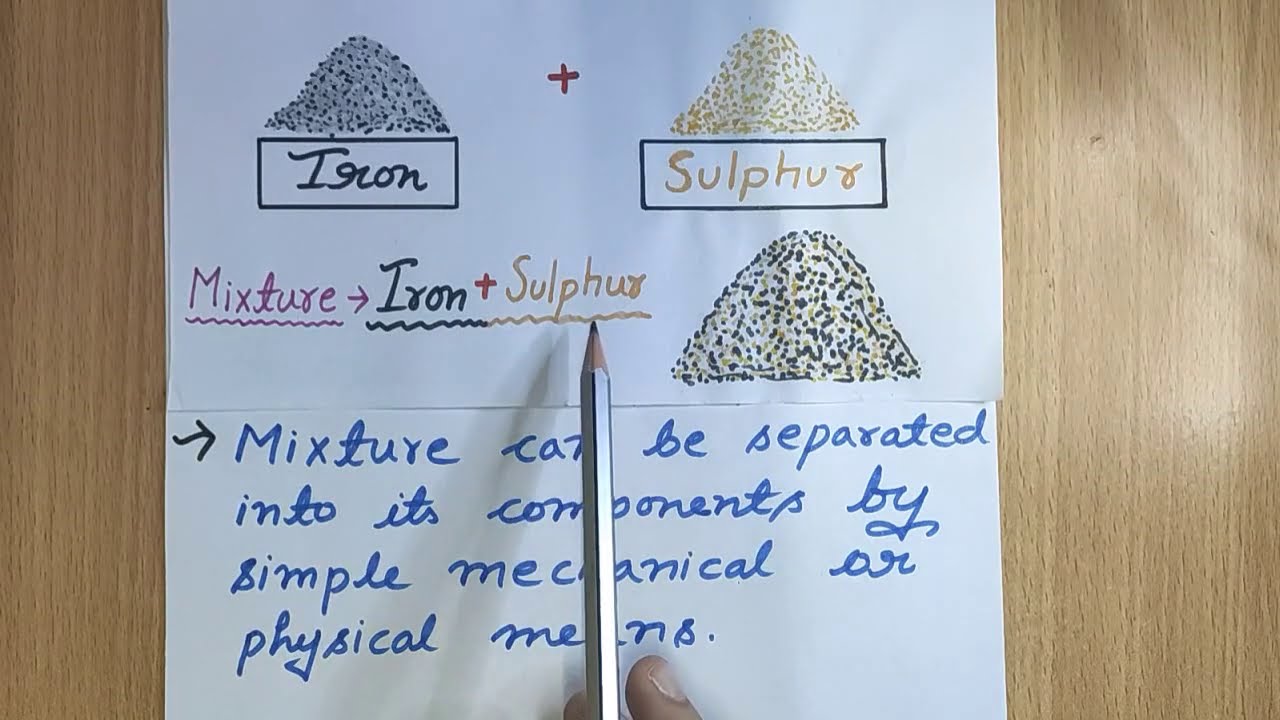 +
Iron
Sulphur
Mixture → Iron + Sulphur
→ Mixture can be separated
into its components by
simple mechanical or
physical means.